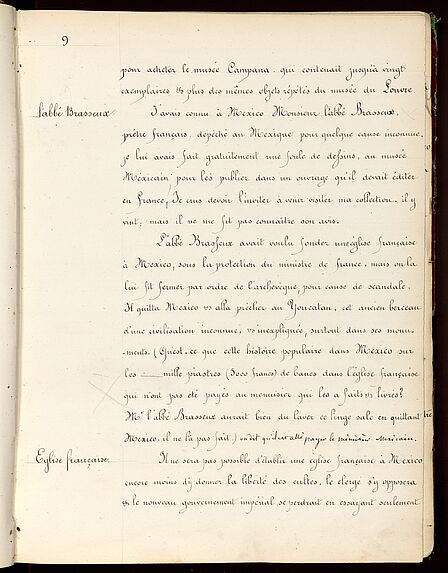 9
pour acheter le musée Campana qui contenait jusqu'à vingt
exemplaires & plus des mêmes objets répétés du musée du Louvre
L'abbé Brasseux
J'avais connu à Mexico Monsieur l'abbé Brasseux,
prêtre français, dépêché au Mexique pour quelque cause inconnue,
je lui avais fait gratuitement une foule de dessins, au musée
Méxicain pour les publier dans un ouvrage qu'il devait éditer
en France, Je crus devoir l'inviter à venir visiter ma collection, il y
vint, mais il ne me fit pas connaître son avis.
L'abbé Brasseux avait voulu fonder une église française
à Mexico, sous la protection du ministre de france, mais on la
lui fit fermer par ordre de l'archevêque, pour cause de scandale.
Il quitta Mexico & alla prêcher au Youcatan, cet ancien berceau
d'une civilisation inconnue, & inexpliquée, surtout dans ses monu-
-ments. (Quest-ce que cette histoire populaire dans Mexico sur
les mille piastres (5000 francs) de bancs dans l'église française
qui n'ont pas été payés au menuisier qui les a faits & livrés?
Mr l'abbé Brasseux aurait bien du laver ce linge sale en quittant
Mexico, il ne l'a pas fait) on dit qu'il
Eglise française.
Il ne sera pas possible d'établir une église française à Mexico
encore moins d'y donner la liberté des cultes, le clergé s'y opposera
& le nouveau gouvernement impérial se perdrait en essayant seulement